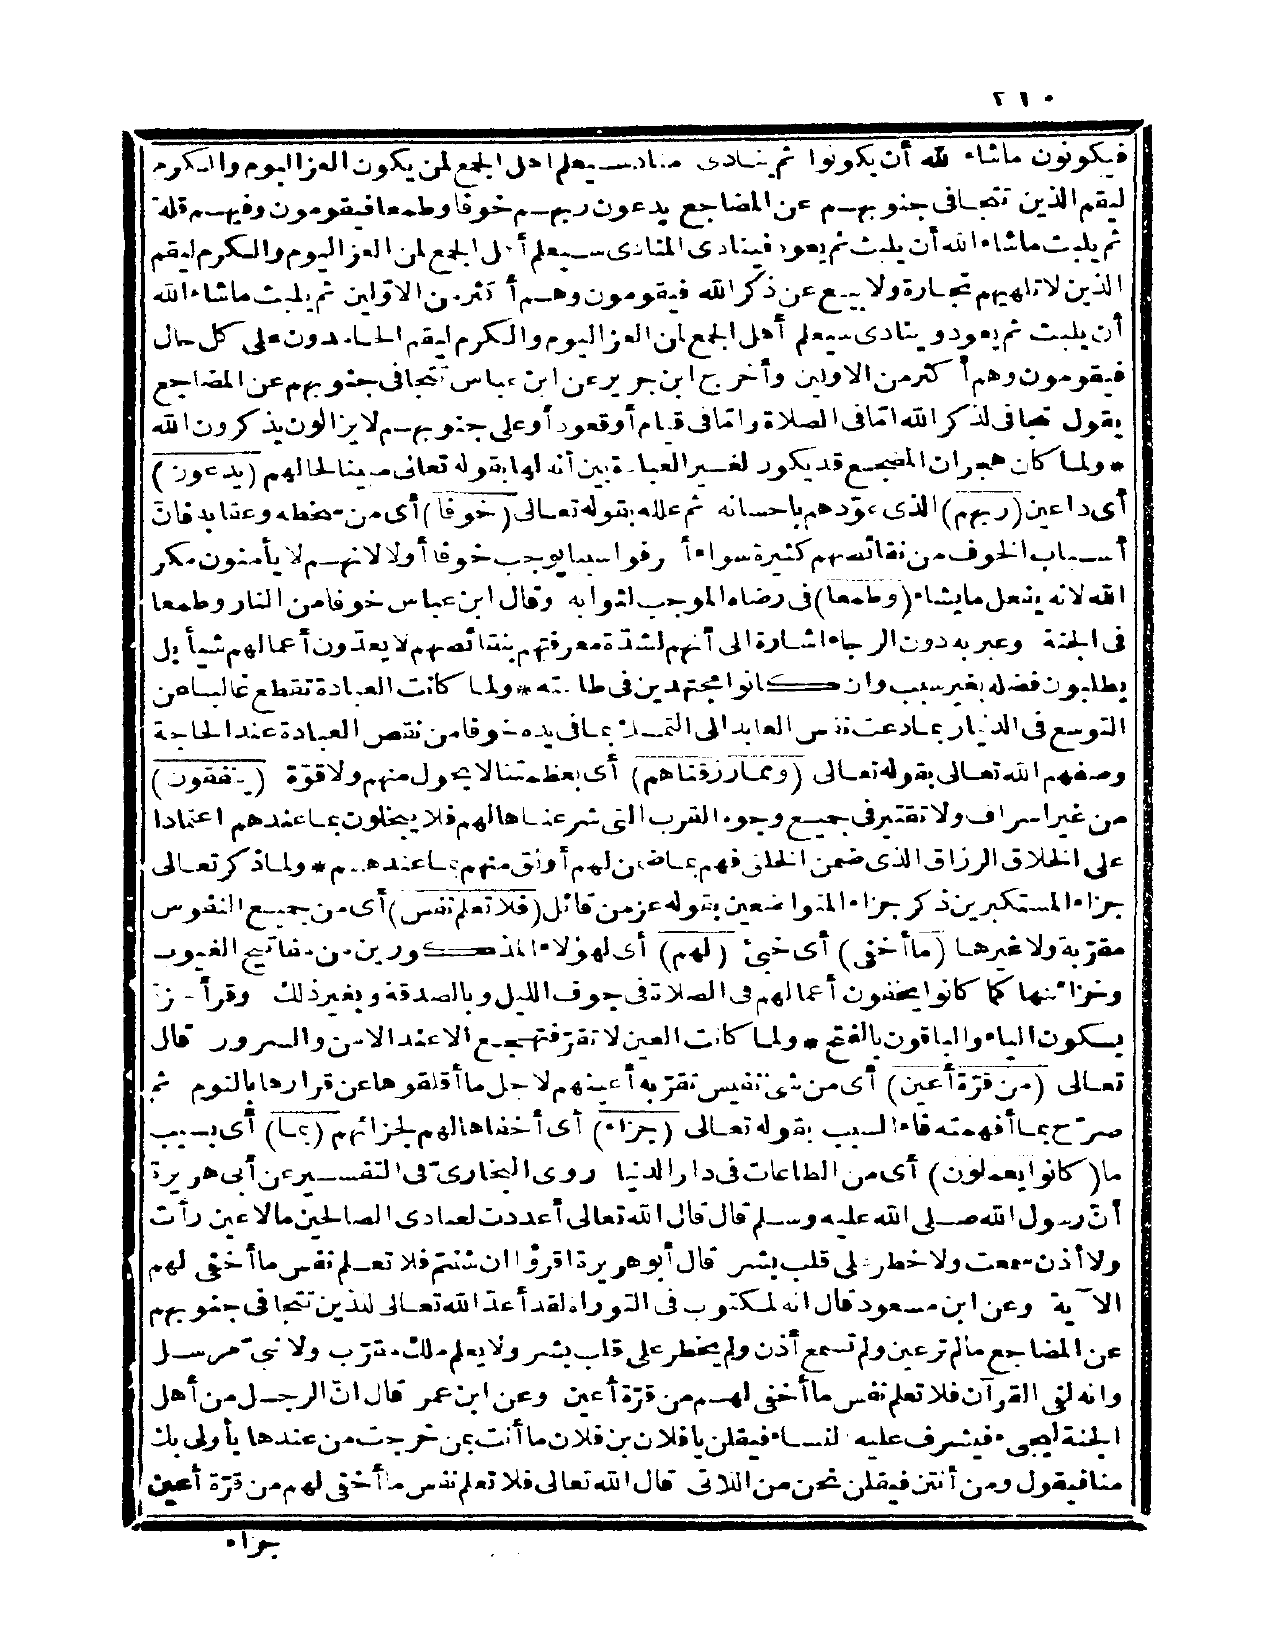 ٢١٠
فيكونون ماشاء الله أن يكونوا ثم ينادى مناد سيعلم اهل الجمع لمن يكون العز اليوم والكرم
ليقم الذين تتجافى جنوبهم عن المضاجع يدعون ربهم خوفا وطمعا فيقومون وفيهم قلة
ثم يلبث ماشاء الله أن يلبث ثم يعود فينادى المنادى سيعلم أهل الجمع لمن العز اليوم والكرم ليقم
الذين لا تلهيهم تجارة ولا بيع عن ذكر الله فيقومون وهم أكثر من الاولين ثم يلبث ماشاء الله
أن يلبث ثم يعود وينادى سيعلم أهل الجمع لمن العز اليوم والكرم ليقم الحامدون على كل حال
فيقومون وهم أكثر من الاولين وأخرج ابن جرير عن ابن عباس تتجافى جنوبهم عن المضاجع
يقول تتجافى لذكر الله امّا فى الصلاة وامّا فى قيام أو قعود أو على جنوبهم لا يزالون يذكرون الله
* ولما كان هجران المضجع قد يكون لغير العبادة بين أنه لها بقوله تعالى مبينا لحالهم (يدعون)
أى داعين (ربهم) الذى عوّدهم باحسانه ثم علله بقوله تعالى (خوفا) أى من سخطه وعقابه فانّ
أسباب الخوف من نقائصهم كثيرة سواء أعرفوا سببا يوجب خوفا أو لا لانهم لا يأمنون مكر
الله لانه يفعل ما يشاء (وطمعا) فى رضاه الموجب لثوابه وقال ابن عباس خوفا من النار وطمعا
فى الجنة وعبر به دون الرجاء اشارة الى أنهم لشدّة معرفتهم بنقائصهم لا يعدّون أعمالهم شيأ بل
يطلبون فضله بغير سبب وان كانوا مجتهدين فى طاعته * ولما كانت العبادة تقطع غالبا عن
التوسع فى الدنيا ربما دعت نفس العابد الى التمسك بما فى يده خوفا من نقص العبادة عند الحاجة
وصفهم الله تعالى بقوله تعالى (ومما رزقناهم) أى بعظمتنا لا بحول منهم ولا قوّة (ينفقون)
من غير اسراف ولا تقتير فى جميع وجوه القرب التى شرعناها لهم فلا يبخلون بما عندهم اعتمادا
على الخلاق الرزاق الذى ضمن الخلف فهم بما ضمن لهم أوثق منهم بما عندهم * ولما ذكر تعالى
جزاء المستكبرين ذكر جزاء المتواضعين بقوله عز من قائل (فلا تعلم نفس) أى من جميع النفوس
مقرّبة ولا غيرها (ما أخفى) أى خبئ (لهم) أى لهؤلاء المذكورين من مفاتيح الغيوب
وخزائنها كما كانوا يخفون أعمالهم فى الصلاة فى جوف الليل وبالصدقة وبغير ذلك وقرأ حمزة
بسكون الياء والباقون بالفتح * ولما كانت العين لا تقرّ فتهجع الا عند الامن والسرور قال
تعالى (من قرّة أعين) أى من شئ نفيس تقرّ به أعينهم لاجل ما أقلقوها عن قرارها بالنوم ثم
صرّح بما أفهمته فاء السبب بقوله تعالى (جزاء) أى أخفاها لهم لجزائهم (بما) أى بسبب
ما (كانوا يعملون) أى من الطاعات فى دار الدنيا روى البخارىّ فى التفسير عن أبى هريرة
أنّ رسول الله صلى الله عليه وسلم قال قال الله تعالى أعددت لعبادى الصالحين مالا عين رأت
ولا أذن سمعت ولا خطر على قلب بشر قال أبو هريرة اقرؤا ان شئتم فلا تعلم نفس ما أخفى لهم
الآية وعن ابن مسعود قال انه لمكتوب فى التوراة لقد أعدّ الله تعالى للذين تتجافى جنوبهم
عن المضاجع مالم تر عين ولم تسمع أذن ولم يخطر على قلب بشر ولا يعلم ملك مقرّب ولا نبىّ مرسل
وانه لفى القرآن فلا تعلم نفس ما أخفى لهم من قرّة أعين وعن ابن عمر قال انّ الرجل من أهل
الجنة ليجىء فيشرف عليه النساء فيقلن يا فلان بن فلان ما أنت بمن خرجت من عندها بأولى بك
منا فيقول ومن أنتن فيقلن نحن من اللاتى قال الله تعالى فلا تعلم نفس ما أخفى لهم من قرّة أعين
جزاء